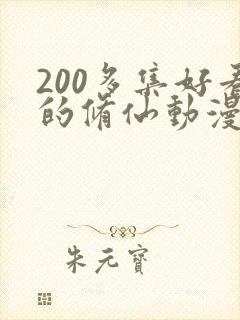 200多集好看
的脩仙動漫
朱元寶